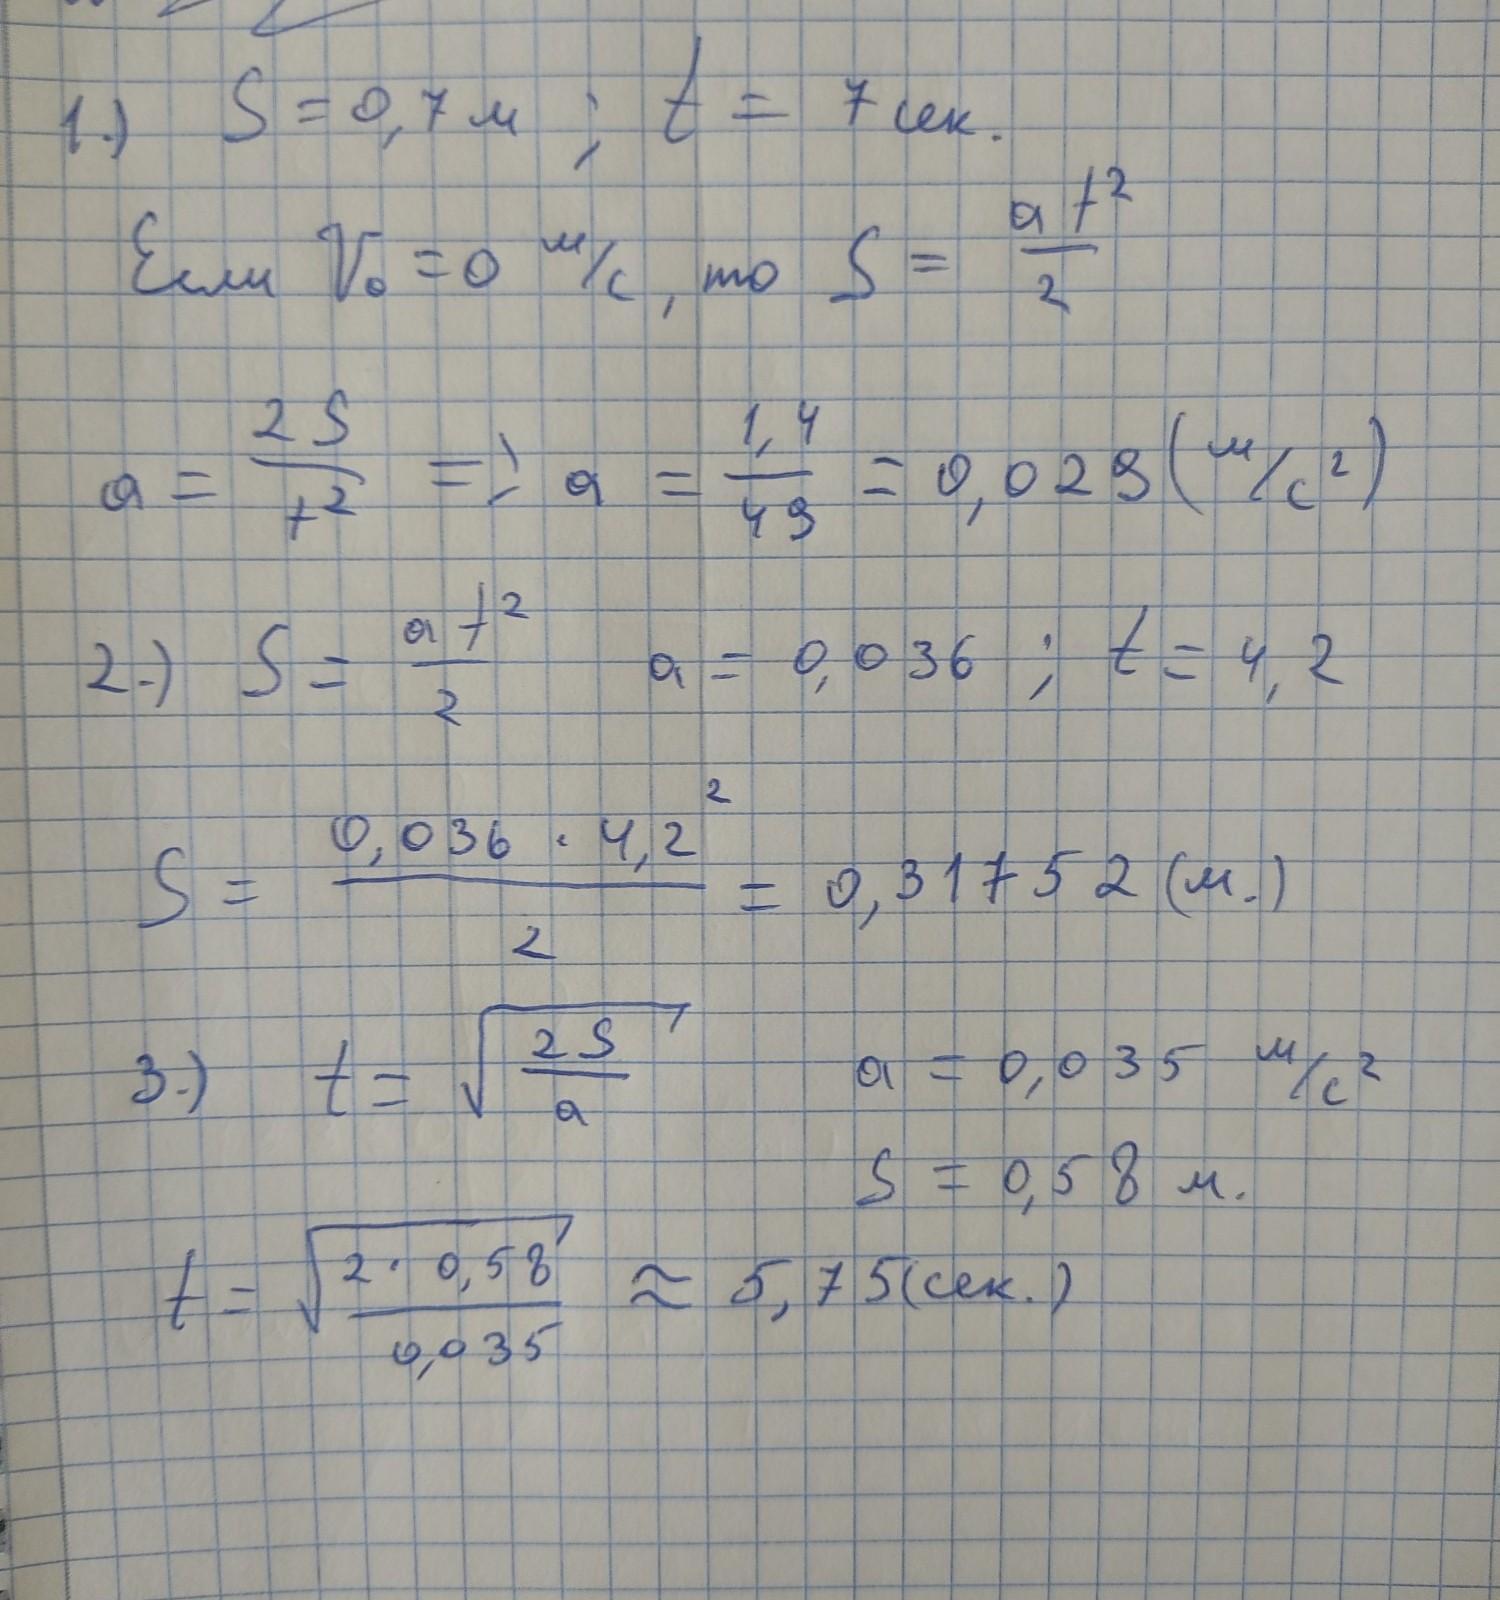 1.) S = 0,7 м ; t = 7 сек.
Если V₀ = 0 м/с, то S = at²/2
a = 2S/t² => a = 1,4/49 = 0,029 (м/с²)
2.) S = at²/2 a = 0,036 ; t = 4,2
S = 0,036 · 4,2²/2 = 0,31752 (м.)
3.) t = √(2S/a) a = 0,035 м/с²
S = 0,58 м.
t = √(2 · 0,58/0,035) ≈ 5,75 (сек.)